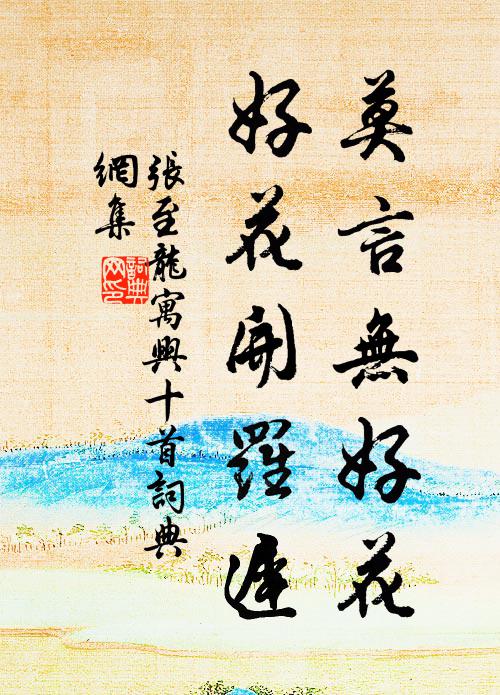 莫言無好花
好花開羅遲
張至龍寓興十首詞典
網集
詞典網印